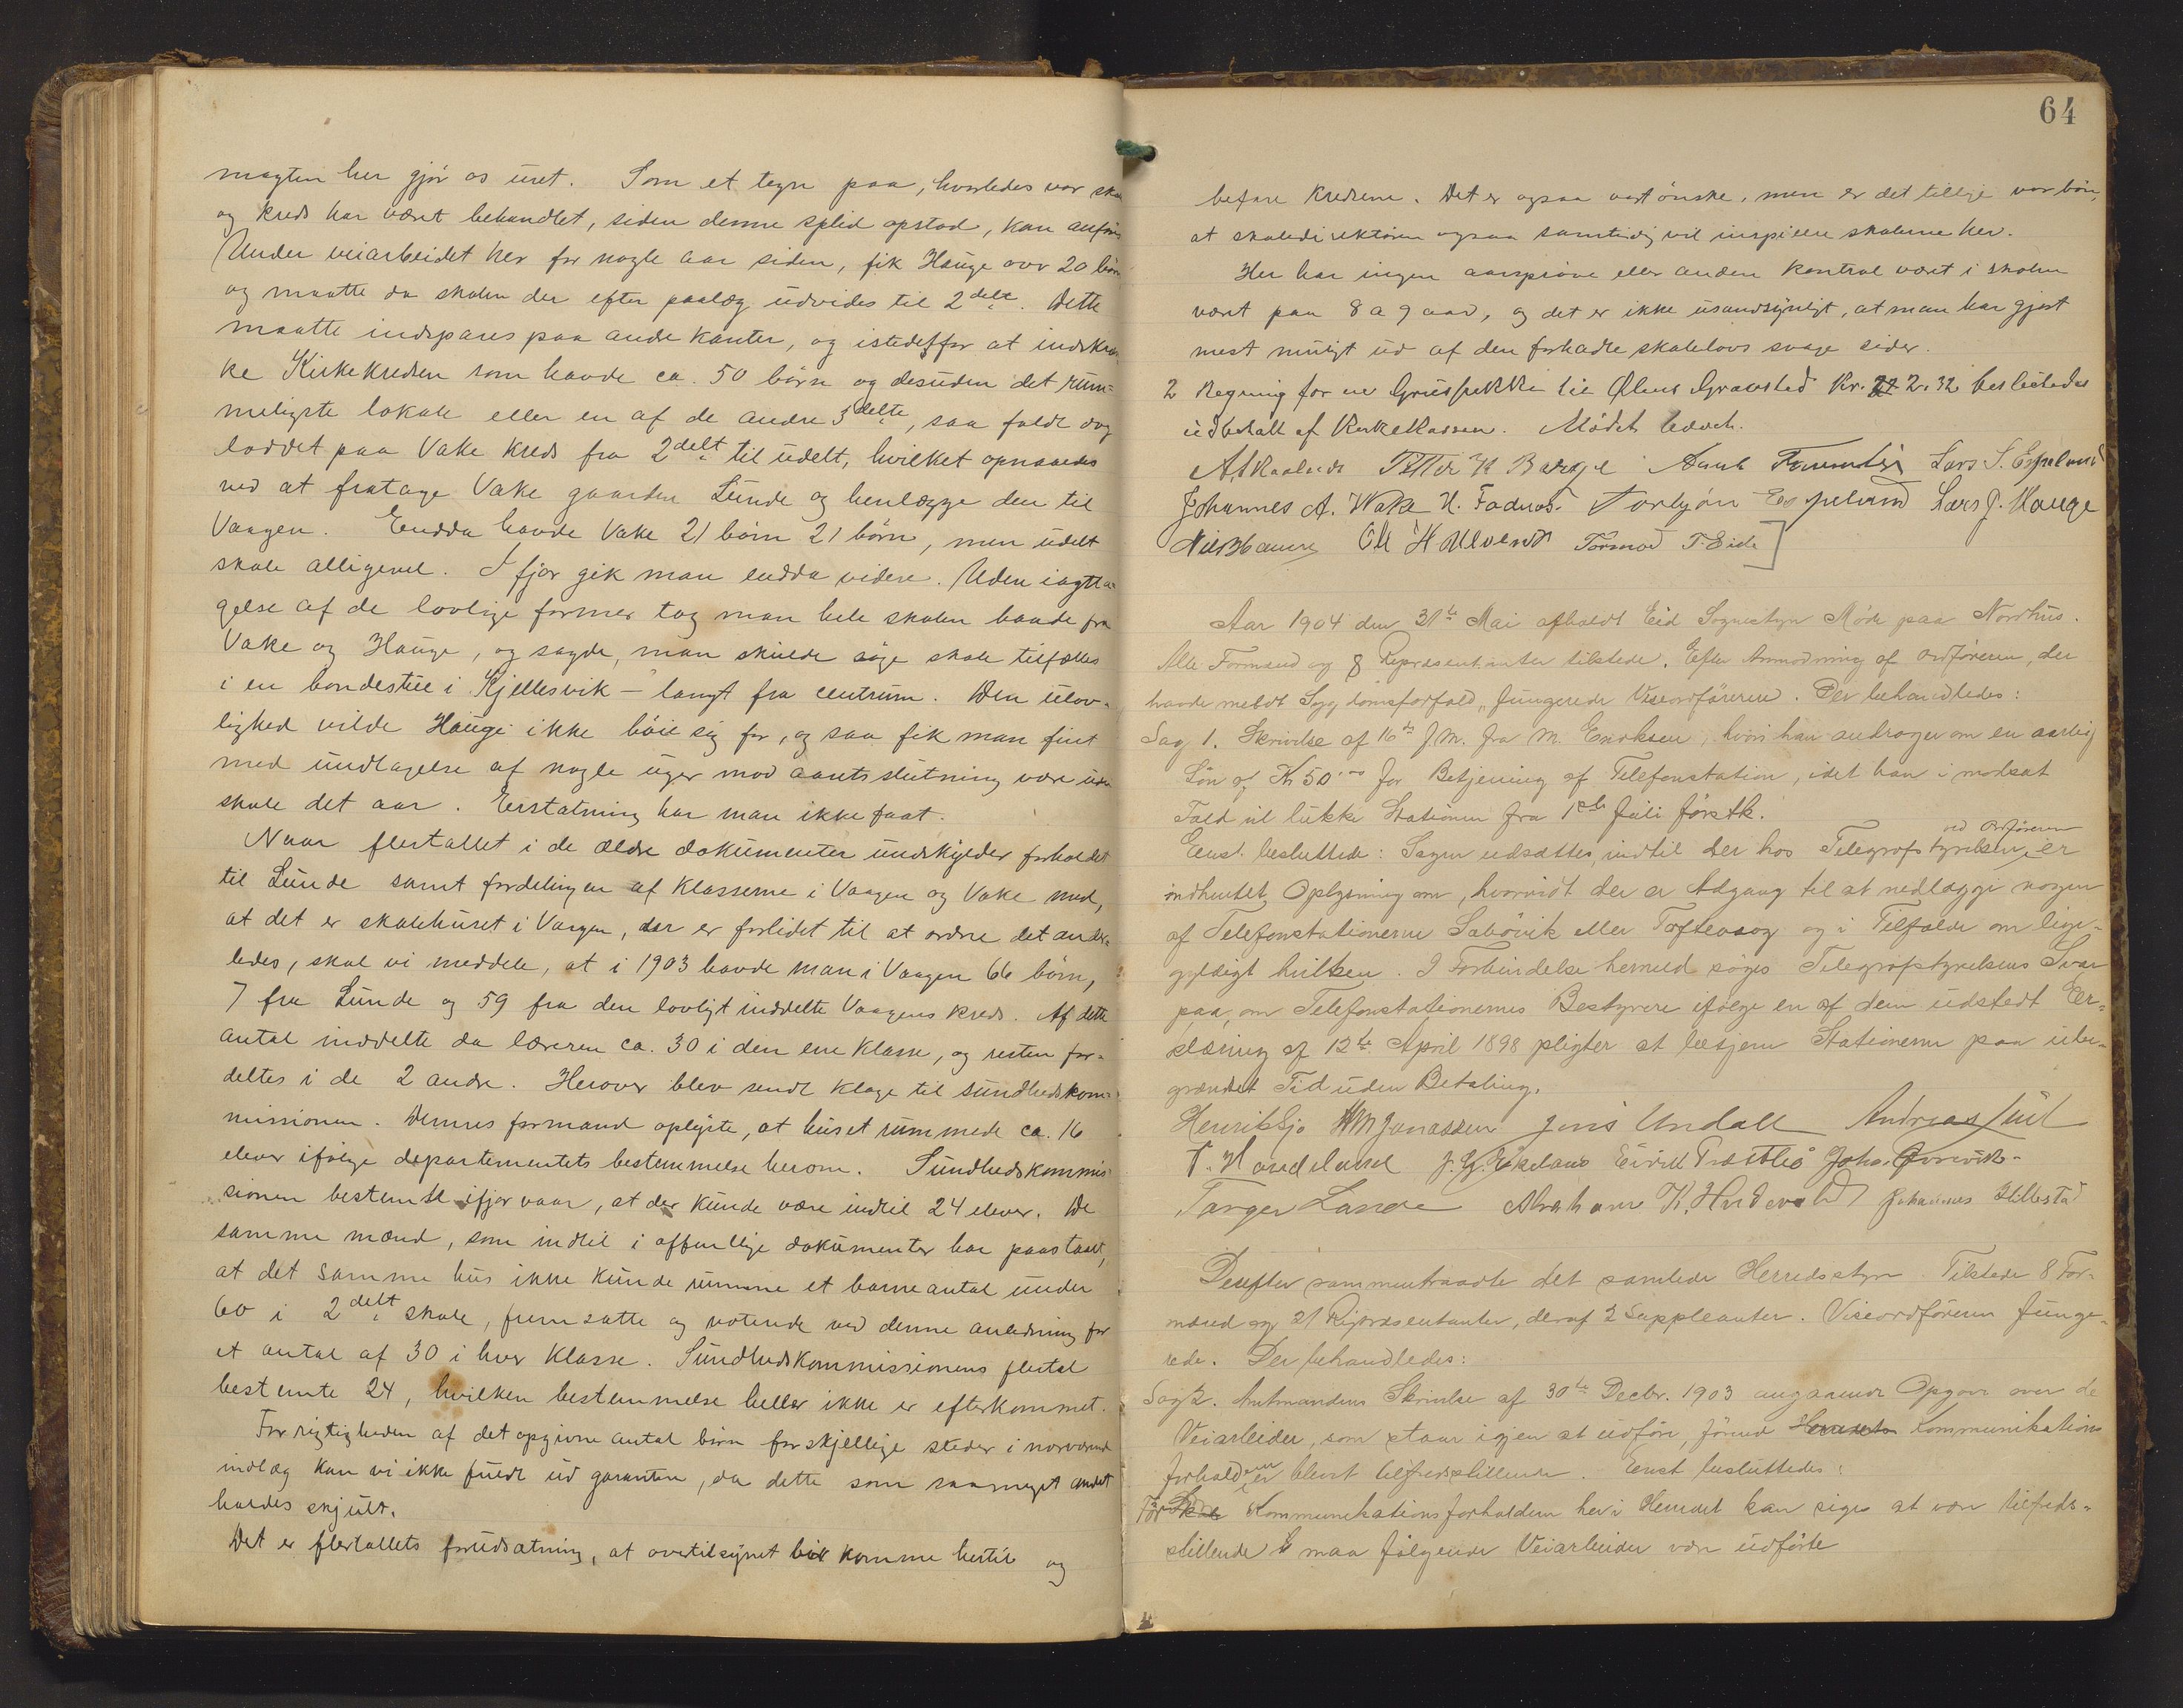 magten her gjør os uret. Som et tegn paa, hvorledes vor
og kreds har været behandlet, siden denne splid opstod, kan
Under veiarbeidet her for nogle aar siden, fik Hauge over 20
og maatte da skolen der efter paalæg udvides til 2delt. Dette
maatte indspares paa andre kanter, og istedetfor at indskræn-
ke Kirkekredsen som havde ca. 50 børn og desuden det rum=
meligste lokale eller en af de andre 3delte, saa faldt dog
loddet paa Vake kreds fra 2delt til udelt, hvilket opnaaedes
ved at fratage Vake gaarden Lunde og henlægge den til
Vaagen. Endda havde Vake 21 børn 21 børn, men udelt
skole alligevel. I fjor gik man endda videre. Uden iagtta-
gelse af de lovlige former tog man hele skolen baade fra
Vake og Hauge, og sagde, man skulde søge skole tilfælles
i en bondestue i Kjellesvik – langt fra centrum. Den ulov-
lighed vilde Hauge ikke bøie sig for, og saa fik man fint
med undtagelse af nogle uger mod aarets slutning være uden
skole det aar. Erstatning har man ikke faat.
Naar flertallet i de ældre dokumenter undskylder forholdet
til Lunde samt fordelingen af klasserne i Vaagen og Vake med,
at det er skolehuset i Vaagen, der er forlidet til at ordne det ander-
ledes, skal vi meddele, at i 1903 havde man i Vaagen 66 børn,
7 fra Lunde og 59 fra den lovligt inddelte Vaagens kreds. Af dette
antal inddelte da læreren ca. 30 i den ene klasse, og resten for-
deltes i de 2 andre. Herover blev sendt klage til sundhedskom-
missionen. Dennes formand oplyste, at huset rummede ca. 16
elever ifølge departementets bestemmelse herom. Sundhedskommis-
sionen bestemte ifjor vaar, at der kunde være indtil 24 elever. De
samme mænd, som indtil i offentlige dokumenter har paastaaet,
at det samme hus ikke kunde rumme et barneantal under
60 i 2delt skole, fremsatte og voterede ved denne anledning for
et antal af 30 i hver klasse. Sundhedskommissionens flertal
bestemte 24, hvilken bestemmelse heller ikke er efterkommet.
For rigtigheden af det opgivne antal børn forskjellige steder i nærværende
indlæg kan vi ikke fuldt ud garantere, da dette som saameget andet
holdes skjult.
Det er flertallets forudsætning, at overtilsynet vil komme hertil og
64
befare kredsene. Det er ogsaa vort ønske, men er det tillige vor bøn,
at skoledirektøren ogsaa samtidig vil inspisere skolerne her.
Her har ingen aarsprøve eller anden kontrol været i skolen
været paa 8 a 9 aar, og det er ikke usandsynligt, at man har gjort
mest muligt ud af den forhadte skolelovs svage sider.
2 Regning for en Gruspukke til Olens Gravsted Kr. 2.32 besluttedes
udbetalt af Kirkekassen. Mødet hævet.
Petter K Barge Lars S. Espeland
Johannes A. Wake Torbjøn Espeland Lars J. Hauge
Ole H Tormod T. Eide
Aar 1904 den 31te Mai afholdt Eid Sognestyre Møde paa Nordhus.
Alle Formænd og 8 Repræsentanter tilstede. Efter Anmodning af Ordføreren, der
havde meldt Sygdomsforfald, fungerede Viseordføreren. Der behandledes:
Sag 1. Skrivelse af 16de f.M. fra M. Eriksen, hvori han andrager om en aarlig
Løn af Kr 50.00 for Betjening af Telefonstation, idet han i modsat
Fald vil lukke Stationen fra 1ste Juli førstk.
Enst. besluttede: Sagen udsættes, indtil der hos Telegrafstyrelsen ved Ordføreren er
indhentet Oplysning om, hvorvidt der er Adgang til at nedlægge nogen
af Telefonstationerne Sæbøvik eller Toftevaag og i Tilfælde om lige-
gyldigt hvilken. I Forbindelse hermed søges Telegrafstyrelsens Svar
paa, om Telefonstationernes Bestyrere ifølge en af dem udstedt Er-
klæring af 12te April 1898 pligter at betjene Stationerne paa ube-
grændset Tid uden Betaling.
Henrik Sjo Jonassen Jens Undall Andreas
Torger Lande Abraham K. Johannes Hillestad
Derefter sammentraadte det samlede Herredsstyre. Tilstede 8 For-
mænd og 21 Repræsentanter, deraf 2 Suppleanter. Viseordføreren funge-
rede. Der behandledes:
Sag 2. Amtmandens Skrivelse af 30te Decbr. 1903 angaaende Opgave over de
Veiarbeider, som staar igjen at udføre, førend Kommunikations
forholdene er blevet tilfredsstillende. Enst besluttedes:
Før Kommunikationsforholdene her i Herredet kan siges at være tilfreds-
stillende maa følgende Veiarbeider være udførte